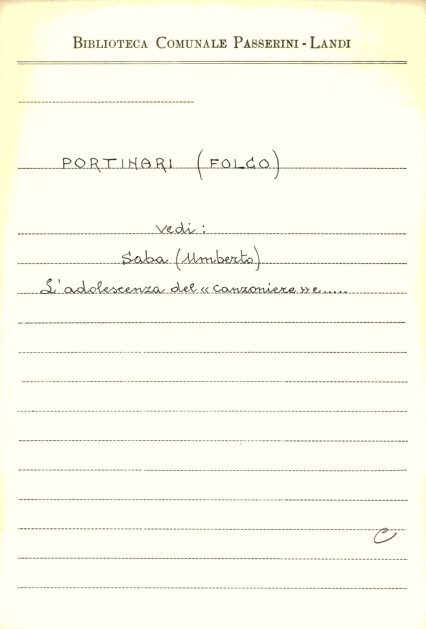 BIBLIOTECA COMUNALE PASSERINI - LANDI
PORTINARI (FOLCO)
vedi:
Saba (Umberto)
L'adolescenza del «canzoniere» e.....
C